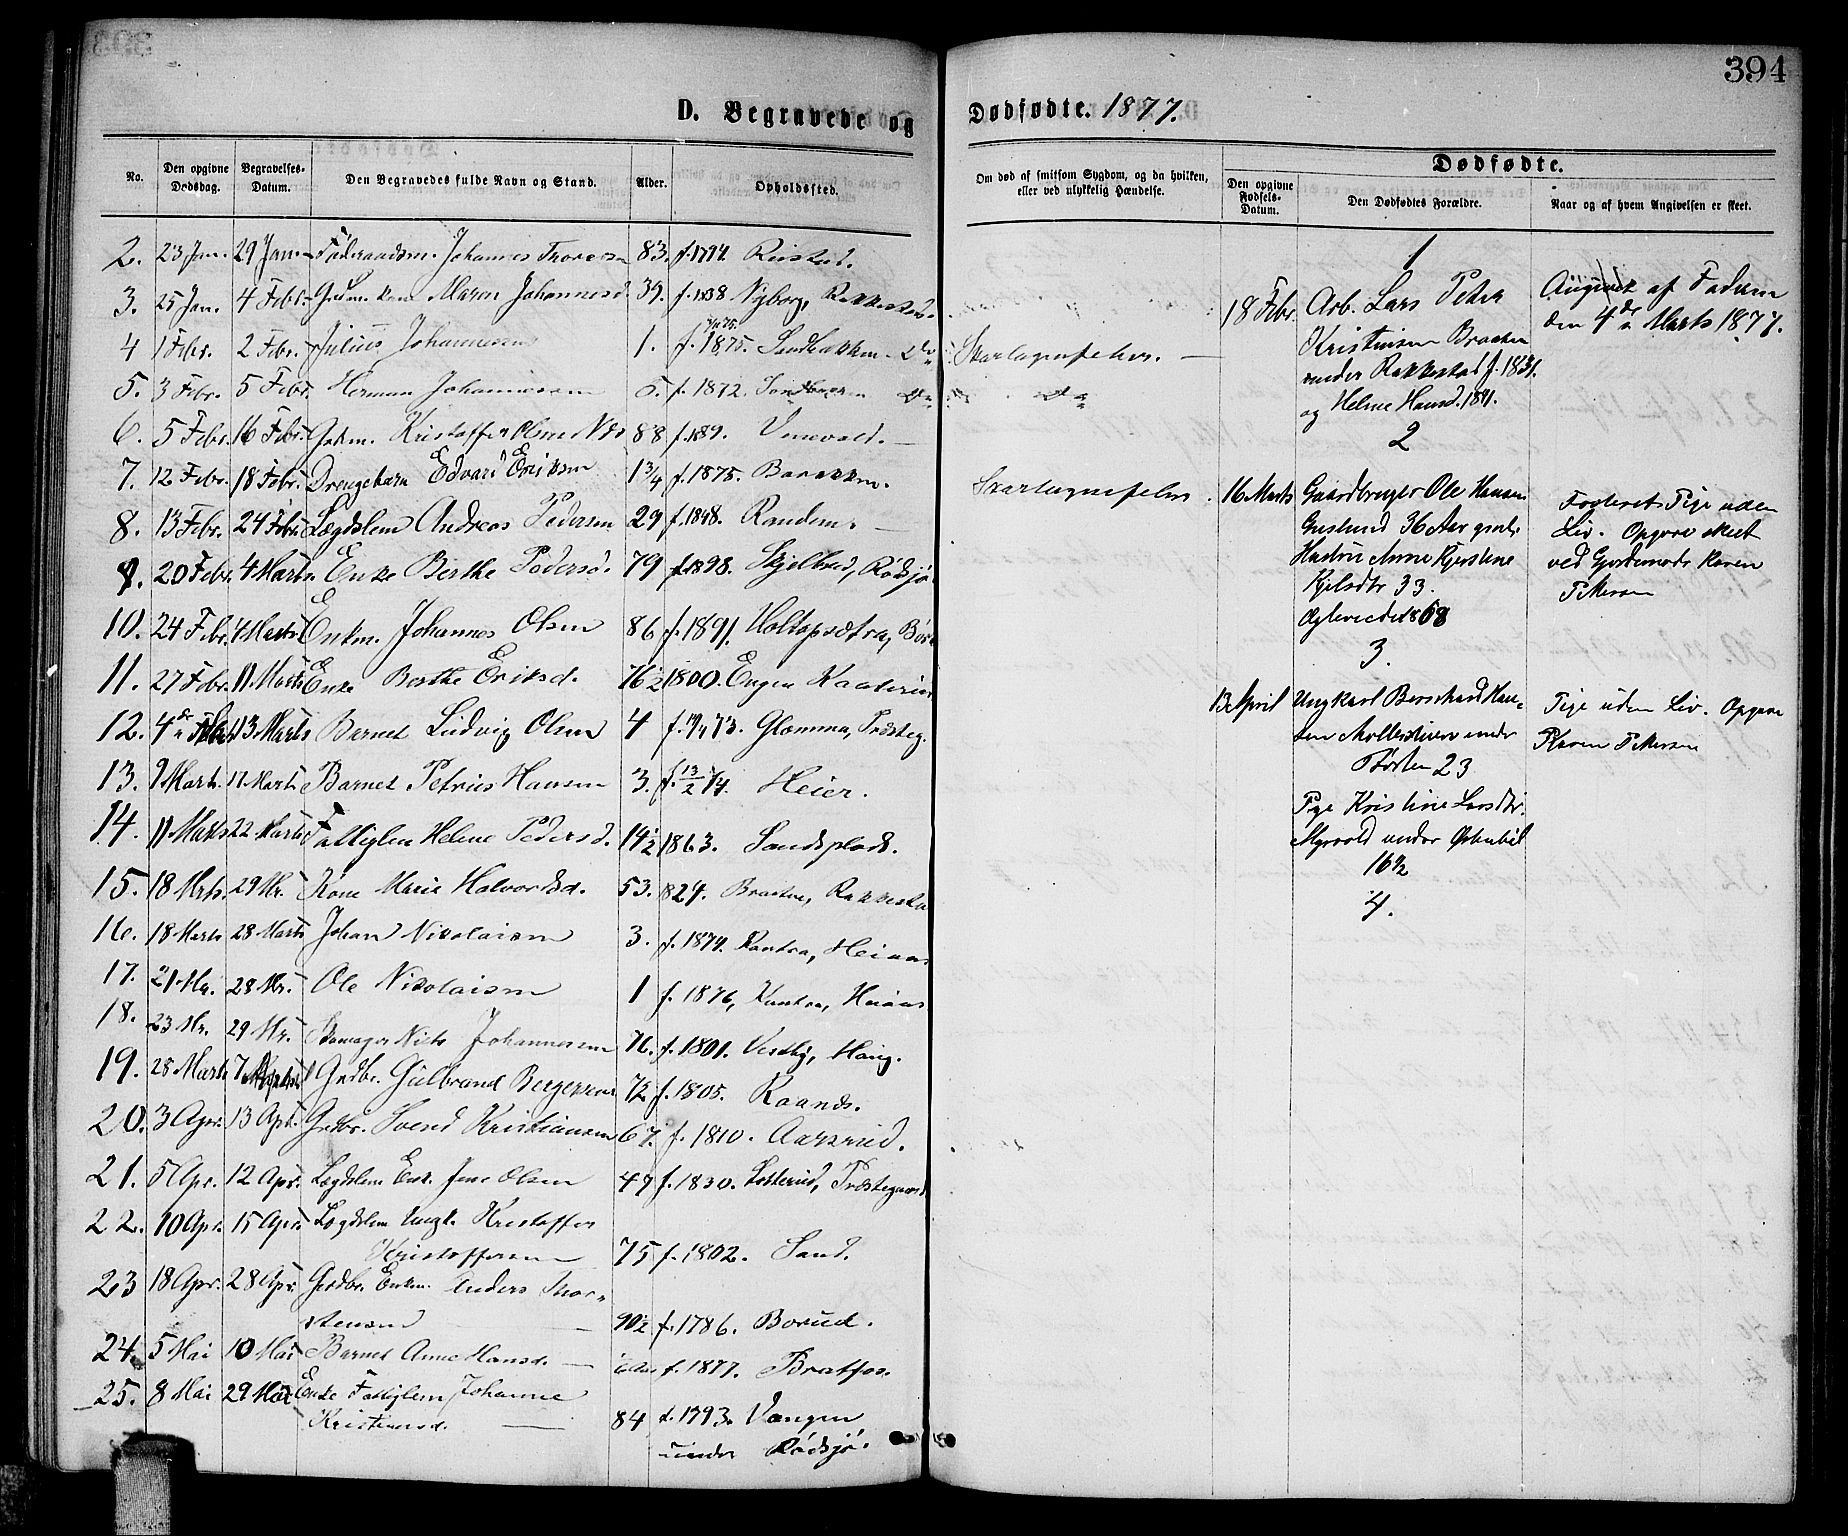 394
D. Begravede og Dødfødte. 1877.
No.
Den opgivne Dødsdag.
Begravelses-Datum.
Den Begravedes fulde Navn og Stand.
Alder.
Opholdssted.
Om død af smitsom Sygdom, og da hvilken, eller ved ulykkelig Hændelse.
Dødfødte.
Den opgivne Fødsels-Datum.
Den Dødfødtes Forældre.
Naar og af hvem Angivelsen er skeet.
2. 23 Jan. 29 Jan. Føderaadsm. Johannes 83. f. 1794. Riistad.
3. 25 Jan. 4 Febr. Maren Johannesd. 39. f. 1838 Nyborg, Rakkestad.
4 1 Febr. 2 Febr. Julius Johannesen 1. f. 1875. Sandbakken Do Skarlagensfeber.
5. 3 Febr. 5 Febr. Herman Johannesen 5. f. 1872. Do Do
6. 5 Febr. 16 Febr. Gaardm. Kristoffer Olsen 88 f. 1789.
7. 12 Febr. 18 Febr. Drengebarn Edvard Eriksen 1 3/4 f. 1875. Barakken. Skarlagensfeber.
8. 13 Febr. 24 Febr. Lægdslem Andreas Pedersen 29 f. 1848. Randem.
9. 20 Febr. 4 Marts Enke Berthe Pedersd. 79 f. 1798. Skjelbred, Rødsjø
10. 24 Febr. 4 Marts Enkm. Johannes Olsen 86 f. 1791.
11. 27 Febr. 11 Marts Enke Berthe Eriksd. 76 1/2 1800. Engen
12. 4de 13 Marts Barnet Ludvig Olsen 4 Glomma, Trøsteg.
13. 9 Marts. 17 Marts Barnet Petrus Hansen 3. f. 13/2 74. Heier.
14. 11 Marts 22 Marts Fattiglem Helene Pedersd. 14 1/2 1863. Sandsplads.
15. 18 Mrts. 29 Mr. Kone Marie Halvorsd. 53. 1824. Rakkesta
16. 18 Marts 28 Marts Johan Nikolaisen 3. f. 1874.
17. 21 Ma. 28 Mr. Ole Nikolaisen 1 f. 1876,
18. 23 Mr. 29 Mr. Skomager Niels Johannesen 76. f. 1801. Vestby, Haug.
19. 28 Marts 7 April Grdbr. Gulbrand Bergersen 72 f. 1805. Raande.
20. 3 Apr. 13 Apr. Grdbr. Svend Kristiansen 67. f. 1810. Aarsrud.
21. 5 Apr. 12 Apr. Lægdslem Enk. Jens Olsen 47 f. 1830. Trøstegaard
22. 10 Apr. 15 Apr. Lægdslem Ungk. Kristoffer
Kristoffersen 75 f. 1802. Sand.
23 18 Apr. 28 Apr. Grdbr. Enkm. Anders Thor-
stensen 90 1/2 f. 1786. Borud.
24. 5 Mai 10 Mai Barnet Anne Hansd. f. 1877. Bratfos.
25. 8 Mai 29 Mai Enke Fattiglem Johanne
Kristiansd. 84 f. 1793. Vangen
under Rødsjø.
1
18 Febr. Arb. Lars Peter
Kristiansen Braaten
under Rakkestad f. 1831.
og Helene Hansd. 1841.
af Faderen
den 4de Marts 1877.
2
16 Marts Gaardbruger Ole Hansen
36 Aar gml.
Hustru Anne Kjerstine
Kjelsdtr 33.
Ægteviede 1868
Fosteret Pige uden
Liv. Opgave skeet
ved Gjordemoder Karen
Pettersen
3.
13 April Ungkarl Bernhard Han-
sen under
23
Pige Kristine Larsdtr.
Myrvold under
16 1/2
Pige uden Liv. Opgave
Karen Pettersen
4.